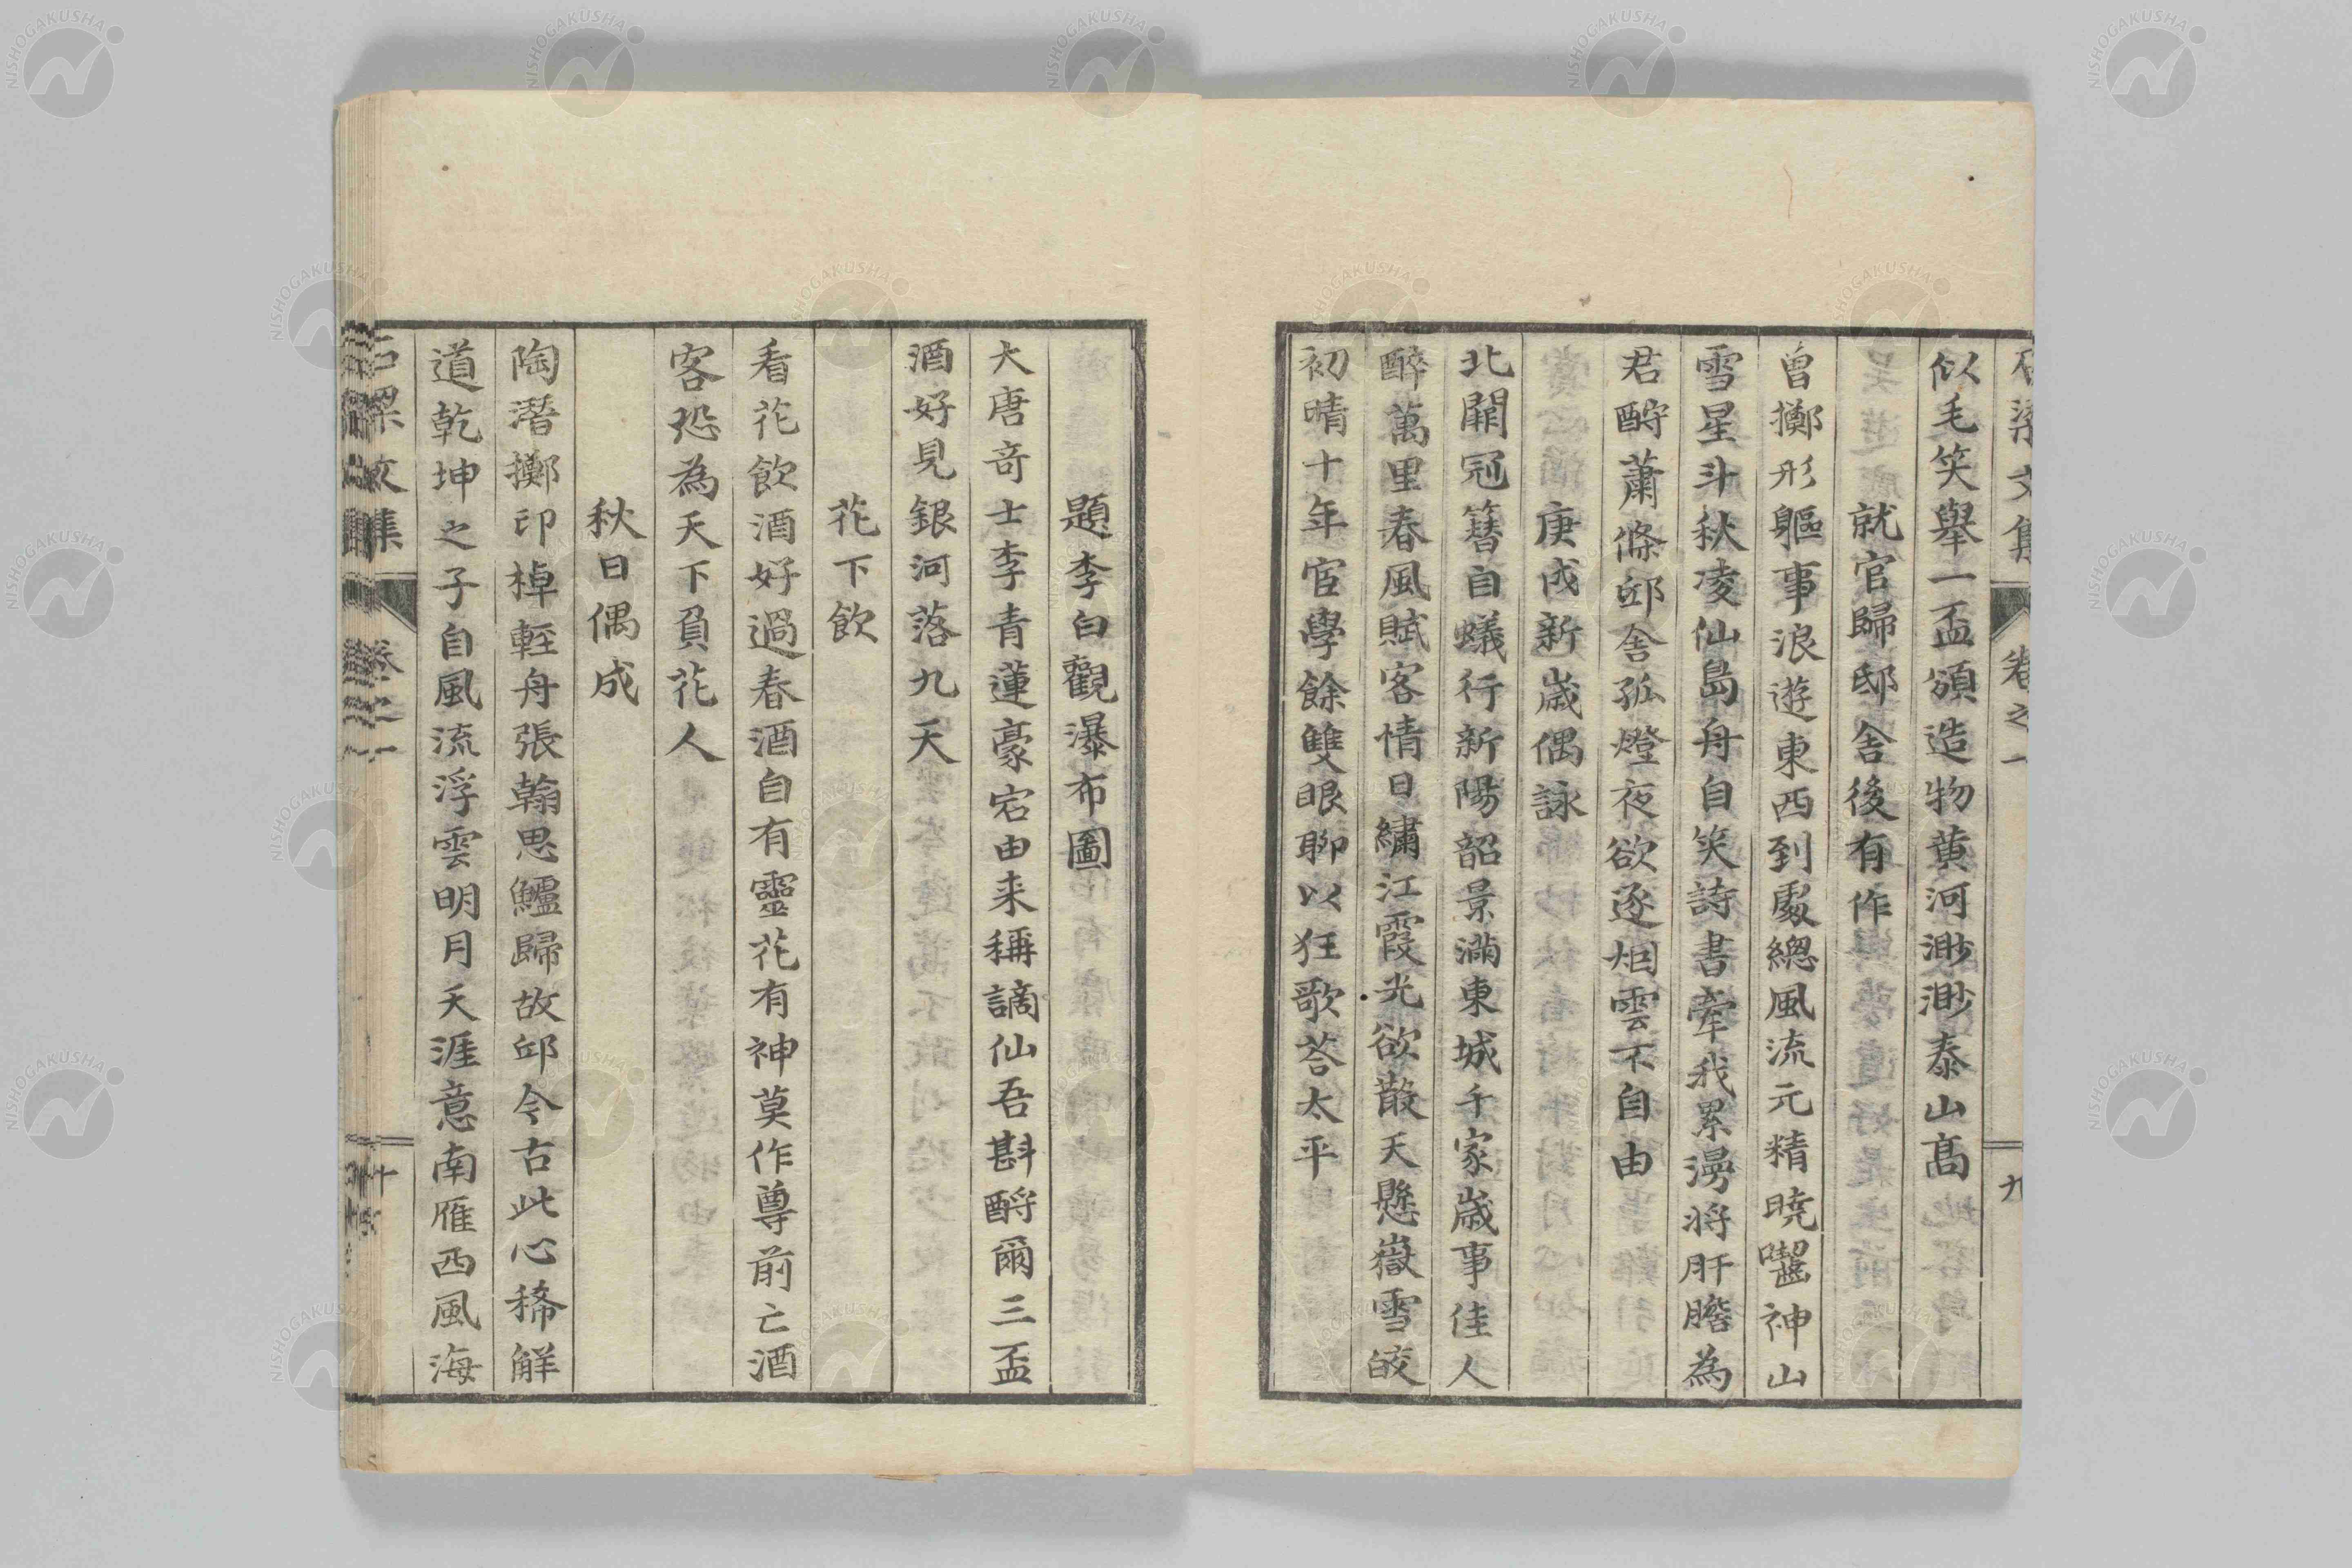 石梁文集 卷之一 九
似毛笑舉一盃頌造物黄河渺渺泰山髙
就官歸邸舍後有作
曽擲形軀事浪遊東西到處總風流元精曉囓神山
雪星斗秋凌仙島舟自笑詩書牽我累漫将肝膽為
君酹蕭條邸舍孤燈夜欲逐烟雲不自由
庚戍新歳偶詠
北闕冠簪自蟻行新陽韶景滿東城千家歳事佳人
醉萬里春風賦客情日繡江霞光欲散天懸嶽雪皎
初晴十年宦學餘雙眼聊以狂歌荅太平
題李白觀瀑布圖
大唐奇士李青蓮豪宕由来稱謫仙吾斟酹爾三盃
酒好見銀河落九天
花下飲
看花飲酒好過春酒自有靈花有神莫作尊前亡酒
客恐為天下負花人
秋日偶成
陶潜擲印棹輕舟張翰思鱸歸故邱今古此心稀觧
道乾坤之子自風流浮雲明月天涯意南雁西風海
石梁文集 卷之一 十
NISHOGAKUSHA